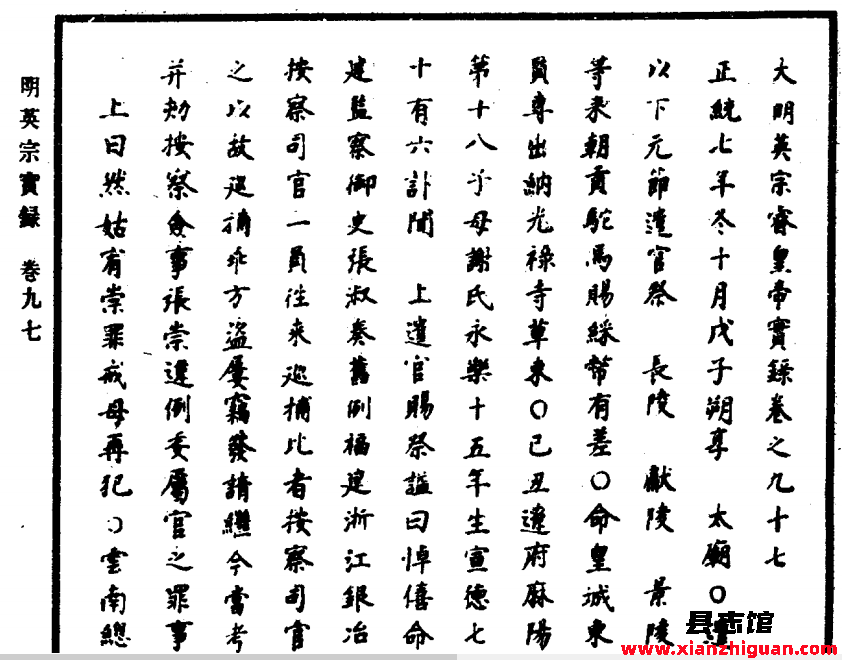 大明英宗睿皇帝實錄卷之九十七
正統七年冬十月戊子朔享 太廟○遣
以下元節遣官祭 長陵 獻陵 景陵
等來朝貢駝馬賜綵幣有差○命皇城東
監專出納光祿寺草束○己丑遼府麻陽
第十八子母謝氏永樂十五年生宣德七
十有六訃聞 上遣官賜祭謚曰悼僖命
建監察御史張淑奏舊例福建浙江銀冶
按察司官一員往来巡捕比者按察司官
之以故巡捕乖方盜屡竊發請繼今當考
并劾按察僉事張崇違例委屬官之罪事
上曰然姑宥崇罪戒毋再犯○雲南總
明英宗實録 卷九七
县志馆
www.xianzhiguan.com